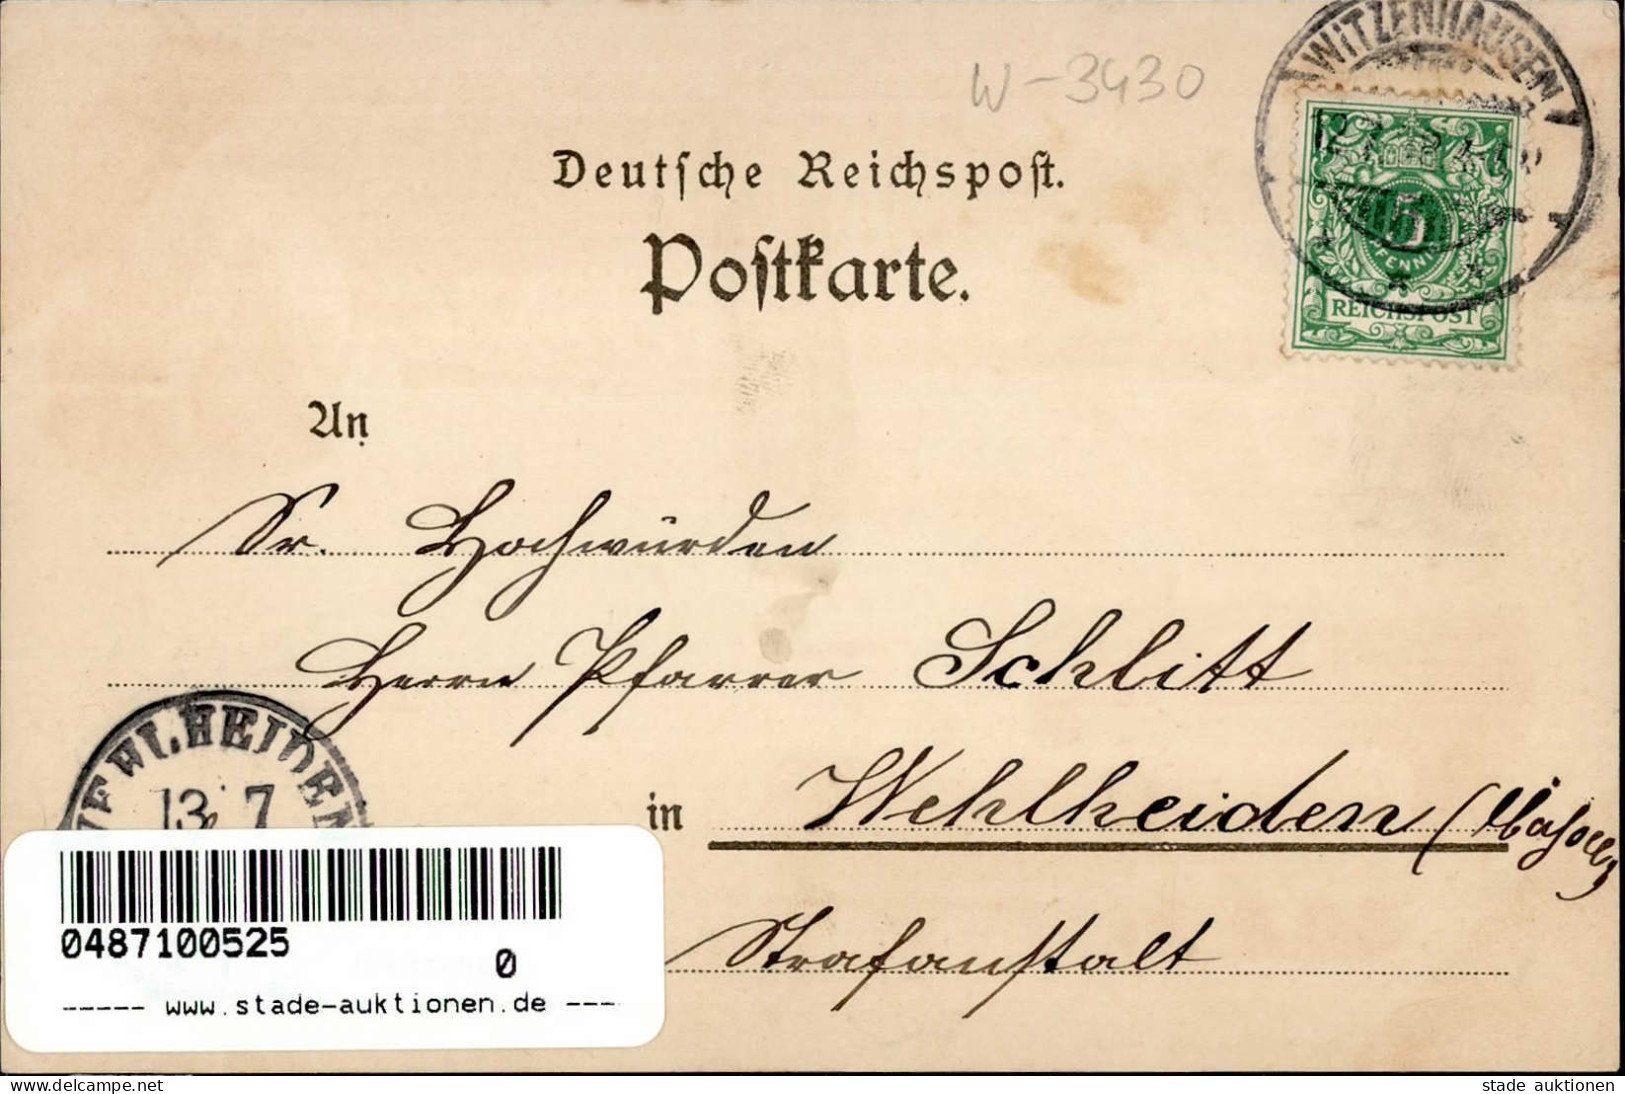 WITZENHAUSEN
W-3430
12.7.
Deutsche Reichspost.
5
PFENNIG
REICHSPOST
Postkarte.
An
Sr. Hochwürden
Herrn Pfarrer Schlitt
WEHLHEIDEN
13 7
in Wehlheiden
Strafanstalt
0487100525
0
----- www.stade-auktionen.de ----
www.delcampe.net
stade auktionen